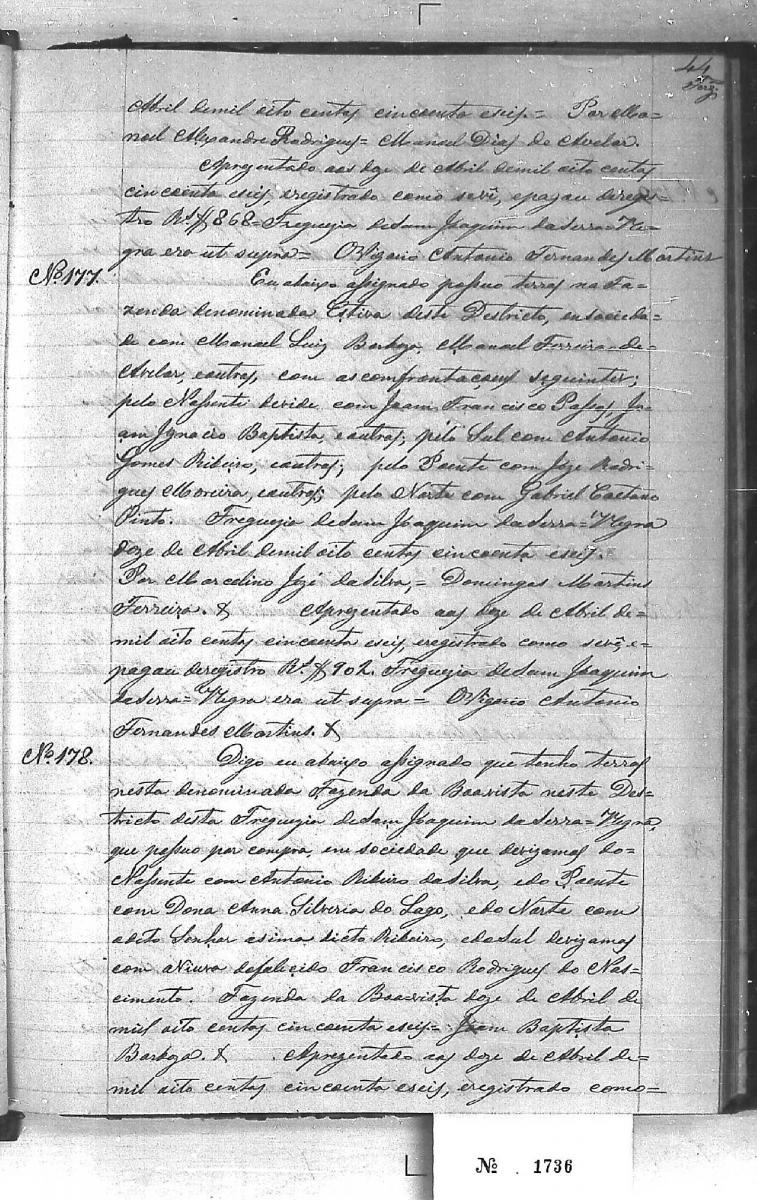 44
Abril demil oito centos cincoenta eseis.= Por Ma=
noel Alexandre Rodrigues= Manoel Dias de Avelar.
Aprezentado aos doze de Abril demil oito centos
cincoenta eseis, eregistrado como sevê, epagou deregis=
tro Rs $868= Freguezia deSam Joaquim daSerra=Ne=
gra era ut supra= OVigario Antonio Fernandes Martins
No 177. Eu abaixo assignado possuo terras na Fa=
zenda denominada Estiva deste Destricto, ensocieda=
de com Manoel Luiz Barboza, Manoel Ferreira de=
Avelar, eoutros, com asconfrontaçoens seguintes;
pelo Nassente devide com Joam Francisco Passos, Jo=
am Ignacio Baptista, eoutros; pelo Sul com Antonio
Gomes Ribeiro, eoutros; pelo Poente com Joze Rodri=
gues Moreira, eoutros; pelo Norte com Gabriel Caetano
Pinto. Freguezia deSam Joaquim daSerra=Negra
doze de Abril demil oito centos cincoenta eseis.
Por Marcelino Jozé daSilva,= Domingos Martins
Ferreira. Aprezentado aos doze de Abril de=
mil oito centos cincoenta eseis, eregistrado como sevê, e=
pagou deregistro Rs $902. Freguezia deSam Joaquim
daSerra=Negra era ut supra= OVigario Antonio
Fernandes Martins.
No 178. Digo eu abaixo assignado que tenho terras
nesta denominada Fazenda da Boavista neste Des=
tricto desta Freguezia deSam Joaquim daSerra=Negra,
que possuo por compra, em sociedade que devizamos do=
Nassente com Antonio Ribeiro daSilva, edo Poente
com Dona Anna Silveria do Lago, edo Norte com
odito Senhor asima dicto Ribeiro, edoSul devizamos
com aViuva dofalecido Francisco Rodrigues do Nas=
cimento. Fazenda da Boavista doze de Abril de
mil oito centos cincoenta eseis= Joam Baptista
Barboza. Aprezentado aos doze de Abril de=
mil oito centos cincoenta eseis, eregistrado como=
No . 1736